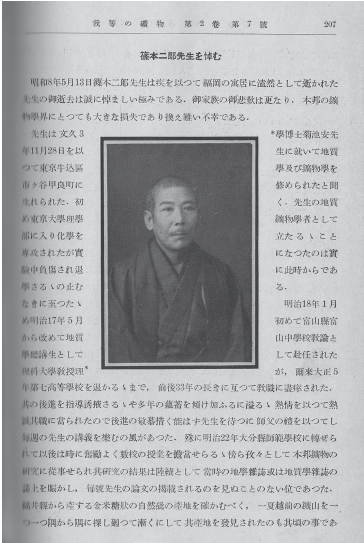 我等の礦物 第2卷 第7號 207
篠本二郎先生を悼む
昭和8年5月13日篠本二郎先生は疾を以つて福岡の寓居に溘然として逝かれた
先生の御逝去は誠に悼ましい極みである．御家族の御悲歎は更なり．本邦の礦
物學界にとつても大きな損失であり換え難い不幸である．
先生は文久3
年11月28日を以
つて東京牛込區
市ヶ谷甲良町に
生れられた．初
め東京大學理學
部に入り化學を
專攻されたが實
驗中負傷され退
學さるゝの止む
なきに至つたゝ
め明治17年5月
から改めて地質
學聽講生として
理科大學教授理*
*學博士菊池安先
生に就いて地質
學及び鑛物學を
修められたと聞
く．先生の地質
鑛物學者として
立たるゝこと
になつたのは實
に此時からであ
る．
明治18年1月
初めて富山縣富
山中學校教諭と
して赴任された
が，爾來大正5
年第七高等學校を退かるゝまで，前後33年の長きに亙つて教職に盡瘁された．
其の後進を指導誘掖さるゝや多年の蘊蓄を傾け加ふるに溢るゝ熱情を以つて熱
誠其職に當られたので後進の敬慕措く能はず先生を待つに師父の禮を以つてし
毎週の先生の講義を樂むの風があつた．殊に明治22年大分縣師範學校に轉ぜら
れて以後は時に奮勵よく數校の授業を擔當せらるゝ傍ら孜々として本邦鑛物の
研究に從事せられ其研究の結果は陸續として當時の地學雜誌或は地質學雜誌の
誌上を賑かし，毎號先生の論文の掲載されるのを見ぬことのない位であつた．
福井縣から產する金米糖狀の自然砒の產地を確かむべく，一夏越前の鑛山を一
つ一つ隅から隅に探し廻つて漸くにして其產地を發見されたのも其頃の事であ